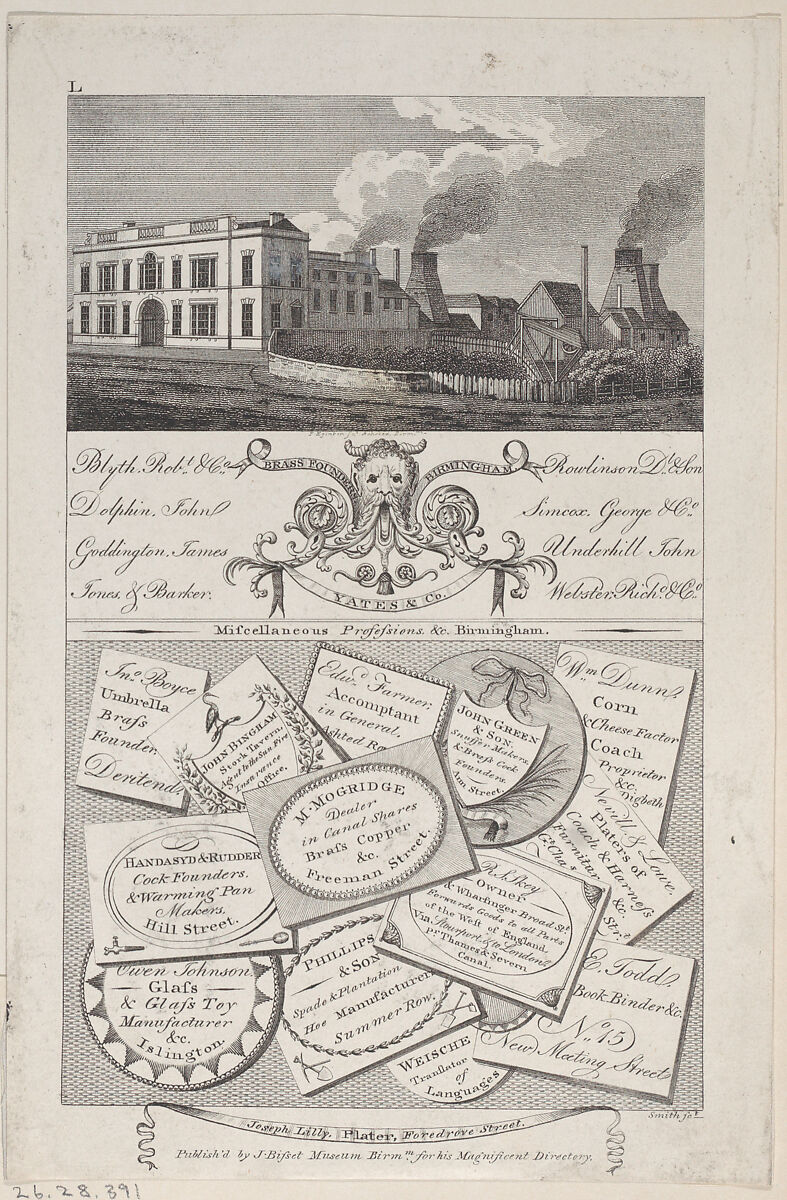 L
BRASS FOUNDERS BIRMINGHAM
Blyth. Robt. & Co.
Dolphin, John
Goddington, James
Jones, & Barker.
Rowlinson Dl. & Son
Simcox, George & Co.
Underhill John
Webster, Richd. & Co.
YATES & Co.
Miſcellaneous Profeſsions. &c. Birmingham.
Jno. Boyce
Umbrella
Braſs
Founder.
Deritend.
JOHN BINGHAM
Stork Tavern,
Agent to the Sun Fire
Insurance
Office.
Edwd. Farmer,
Accomptant
in General,
Ashted Ro
JOHN GREEN
& SON.
Snuffer Makers,
& Braſs Cock
Founders.
Ann Street.
Wm. Dunn,
Corn
& Cheese Factor
Coach
Proprietor
&c.
Digbeth
M. MOGRIDGE
Dealer
in Canal Shares
Braſs Copper
&c.
Freeman Street.
Newill, & Lowe,
Platers of
Coach & Harneſs
Furniture &c.
Gt. Chas. Strt.
HANDASYD & RUDDER
Cock Founders,
& Warming Pan
Makers,
Hill Street.
R. Skey
Owner
& Wharfinger Broad Spt.
Forwards Goods to all Parts
of the West of England,
Via. Stourport, & to London,
Pr. Thames & Severn
Canal.
Owen Johnson,
Glaſs
& Glaſs Toy
Manufacturer
&c.
Islington.
PHILLIPS
& SON
Spade & Plantation
Hoe Manufacturers
Summer Row.
E. Todd,
Book Binder &c.
No. 15
New Meeting Street
WEISCHE
Tranſlator
of
Languages
Smith ſct.
Joseph Lilly, Plater, Foredrove Street.
Publish'd by J. Biſset Museum Birmm. for his Magnificent Directory,
26.28.391